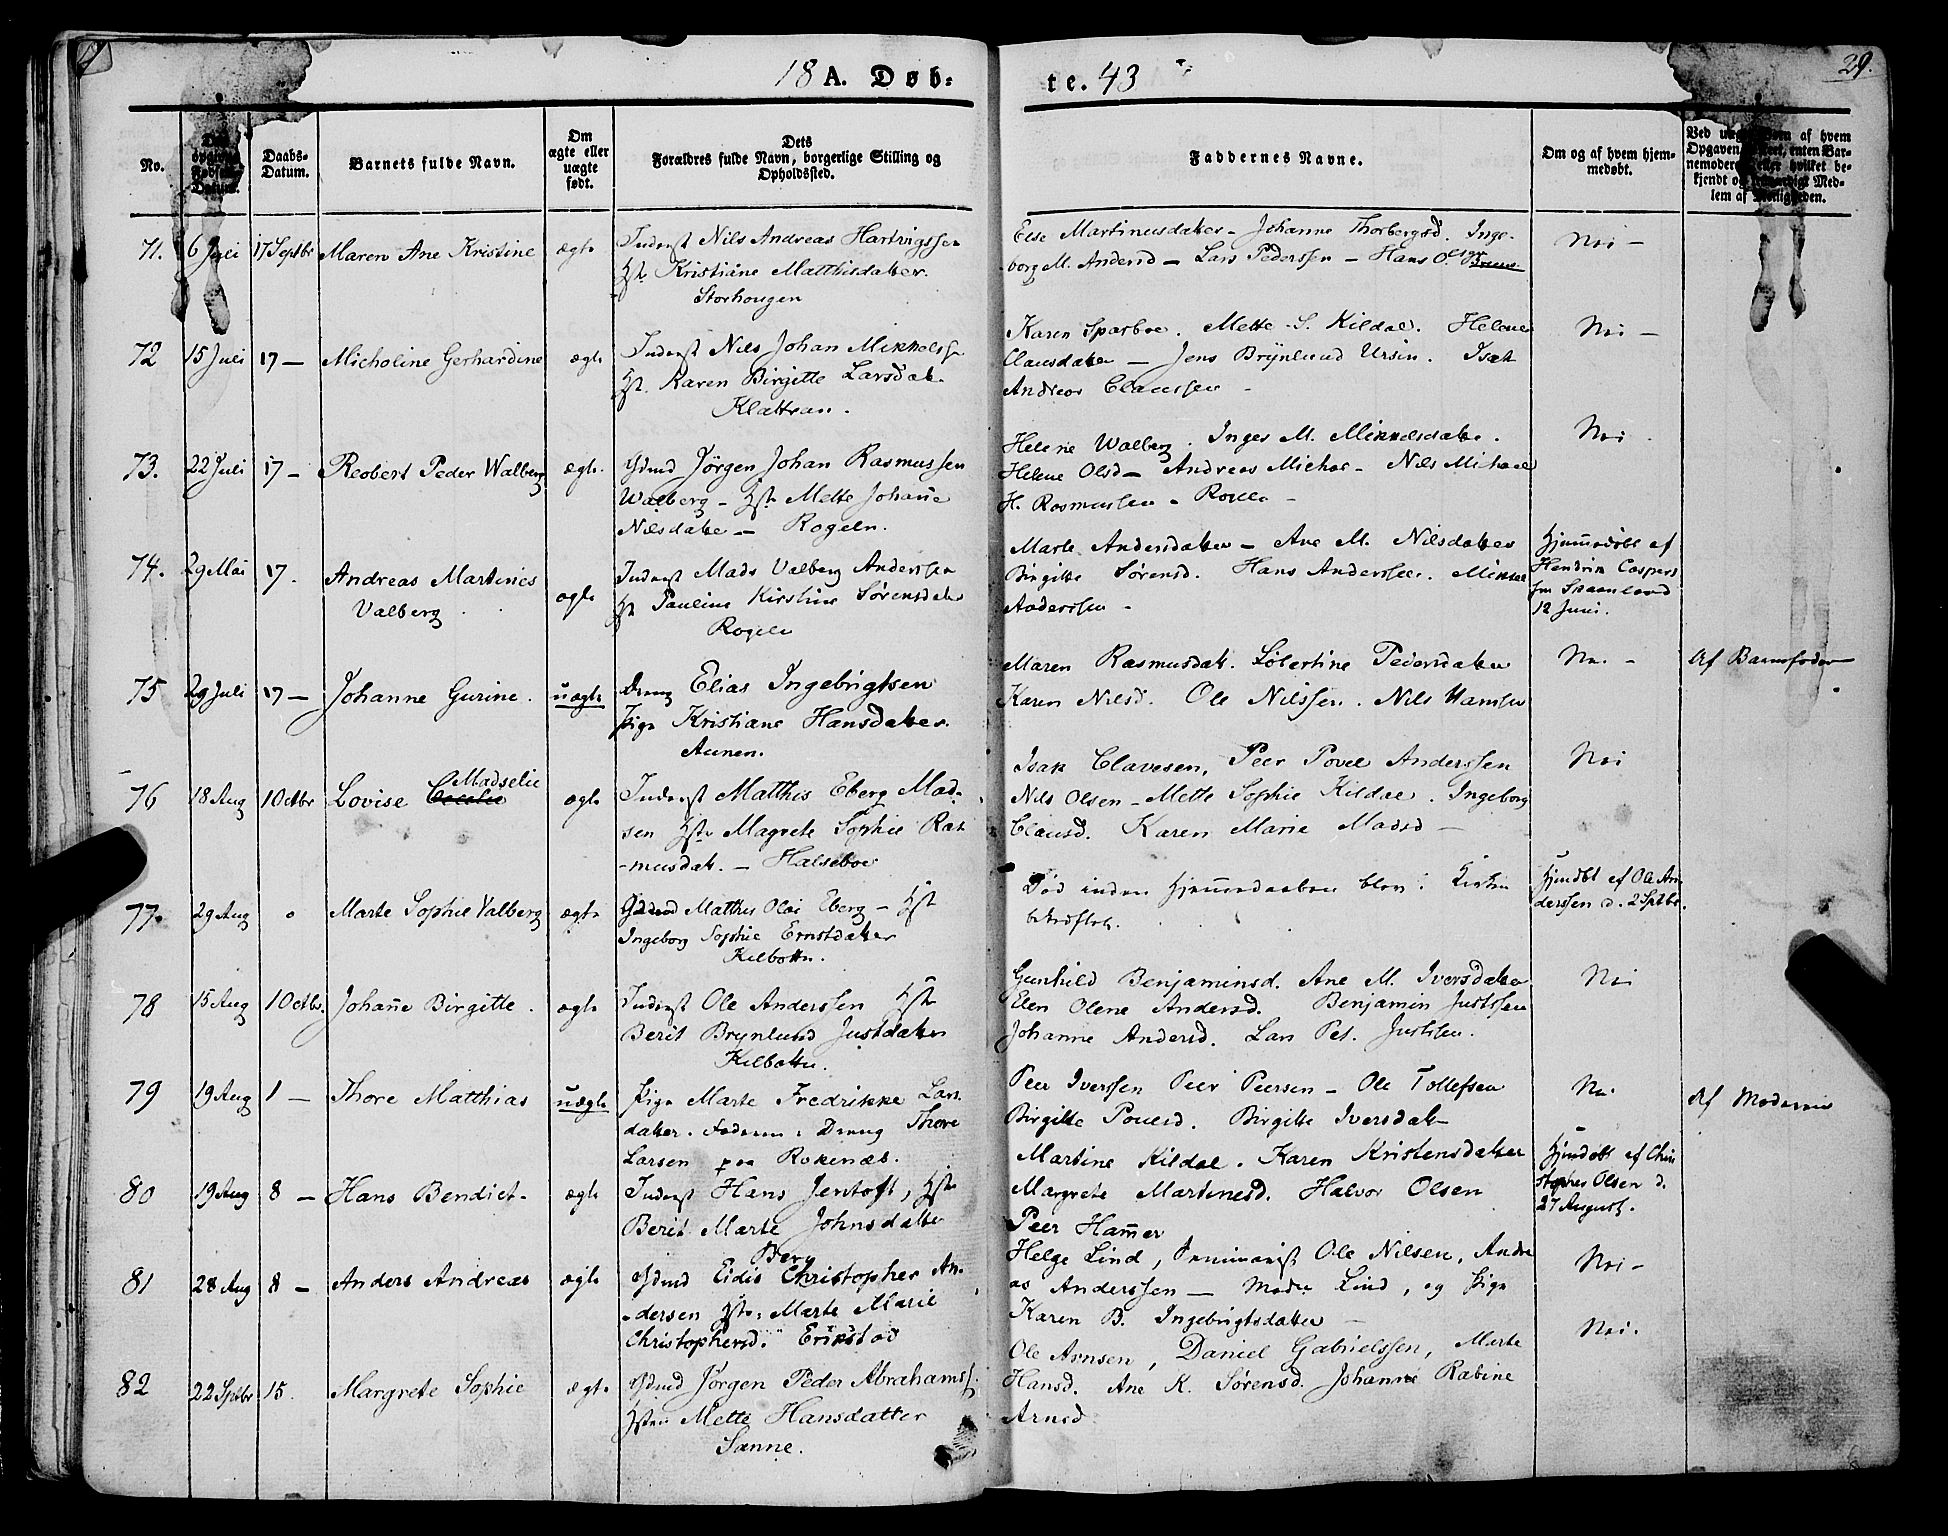 18 A. Døb- te. 43
29.
No.
Dets opgivne Fødsels-Datum.
Daabs-Datum.
Barnets fulde Navn.
Om ægte eller uægte født.
Dets Forældres fulde Navn, borgerlige Stilling og Opholdssted.
Faddernes Navne.
Om og af hvem hjemmedøbt.
Ved uægte Børn af hvem Opgaven er skeet, enten Barnemoderen eller hvilket bekjendt og troværdigt Medlem af Menigheden.
71. 6 Juli 17 Septbr Maren Ane Kristine ægte
Inderst Nils Andreas Hartvigssen
Hst. Kristiane Matthisdatter.
Storhougen
Else Martinusdatter - Johanne Thorbergsd. Inge-
borg M. Andersd - Lars Pederssen - Hans
Nei -
72 15 Juli 17 - Micholine Gerhardine ægte
Inderst Nils Johan Mikkelss
Hst. Karen Birgitte Larsdat.
Klattran.
Karen Sparboe. Mette S. Kildal. Helene
Clausdatter - Jens Brynlund Ursin. Isak
Andreas Claussen -
Nei -
73. 22 Juli 17 - Reobert Peder Walberg ægte.
Gdmd Jørgen Johan Rasmussen
Walberg - Hst. Mette Johañe
Nilsdatter - Rogeln.
Helene Walberg. Inger M. Mikkelsdatter.
Helene Olsd - Andreas Michal - Nils Michael
H. Rasmussen - Roeln -
Nei.
74. 29 Mai 17. Andreas Martinus
Valberg. ægte
Inderst Mads Valberg Anderssen
Hst Pauline Kirstine Sørensdatter
Rogeln
Marte Andersdatter - Ane M. Nilsdatter
Birgitte Sørensd. Hans Anderssen. Mikkel
Anderssen -
Hjemmedøbt af
Hendrik Caspers
fra Skaanland
12 Juni.
75 29 Juli 17 - Johanne Gurine. uægte
Dreng Elias Ingebrigtsen
Pige Kristiane Hansdatter.
Aunen.
Maren Rasmusdat. Sólertine Pedersdatter
Karen Nilsd. Ole Nilssen. Nils Hansen
Nei -
Af Barnefader
76 18 Aug 1 Octbr Lovise Cecelie Madselie ægte
Inderst Matthis Eberg Mad-
sen Hst. Magrete Sophie Ras
-musdat. - Halseboe
Isak Clavesen, Peer Povel Anderssen
Nils Olsen - Mette Sophie Kildal. Ingeborg
Clausd. Karen Marie Madsd -
Nei
77. 29 Aug " Marte Sophie Valberg ægte
Gdmd Matthis Olai Eberg - Hst
Ingeborg Sophie Ernstdatter
Kilbotten.
Død inden Hjemmedaaben blev i Kirken
bekræftet.
Hjmdbt af Ole An
derssen d. 2 Septbr.
78 15 Aug 1 Octbr. Johañe Birgitte. ægte
Inderst Ole Anderssen Hst
Berit Brynlund Justdatter
Kilbotten.
Gunhild Benjaminsd. Ane M. Iversdatter
Elen Olene Andersd. Benjamin Justssen
Johanne Andersd. Lars Pet. Justssen.
Nei
79 19 Aug 1 - Thore Matthias uægte
Pige Marte Fredrikke Lars
datter. Faderen: Dreng Thore
Larsen paa Rokenæs.
Peer Iverssen Peer Peersen - Ole Tollefsen
Birgitte Povelsd. Birgitte Iversdat-
Nei
Af Moderen
80 19 Aug 8 - Hans Bendict - ægte
Inderst Hans Jentoft, Hst.
Berit Marte Johnsdatter
Berg
Martine Kildal. Karen Kristensdatter
Margrete Martinesd. Halvor Olsen
Peer Ham̃er
Hjmdøbt af Chri
stopher Olsen d.
27 August.
81 28 Aug 8 - Anders Andreas ægte
Gdmd Eidis Christopher An-
-dersen Hst. Marte Marie
Christophersd. Erikstad
Helge Lind, Ole Nilsen, Andre
as Anderssen - Mads Lind, og Pige
Karen B. Ingebrigtsdatter -
Nei -
82 22 Septbr 15. Margrete Sophie ægte
Gdmd Jørgen Peder Abrahamss.
Hstru Mette Hansdatter
Sanne.
Ole Arnsen, Daniel Gabrielssen, Marte
Hansd. Ane K. Sørensd. Johanne Rabine
Arnsd
Nei.